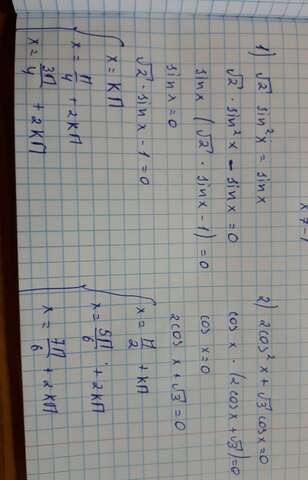 x 7 - 1
1) √2 sin²x = sin x
√2 · sin²x - sin x = 0
sin x (√2 · sin x - 1) = 0
sin x = 0
√2 · sin x - 1 = 0
x = kπ
x = π/4 + 2kπ
x = 3π/4 + 2kπ
2) 2cos²x + √3 cos x = 0
cos x · (2cos x + √3) = 0
cos x = 0
2cos x + √3 = 0
x = π/2 + kπ
x = 5π/6 + 2kπ
x = 7π/6 + 2kπ